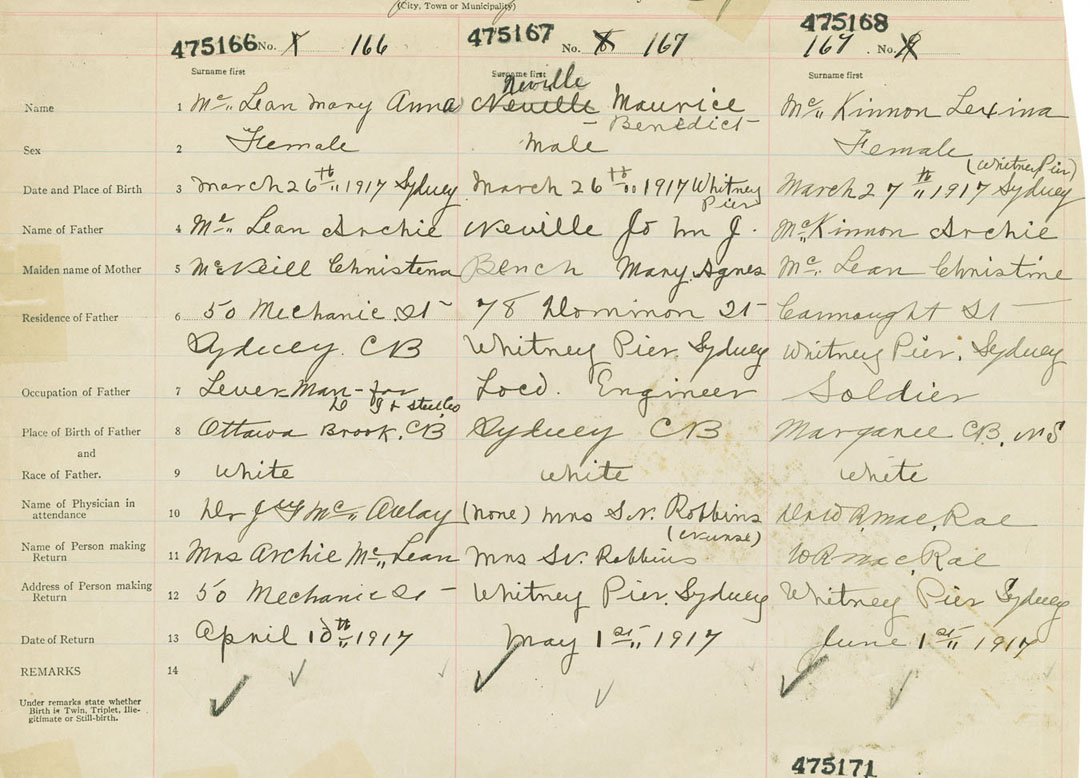 (City, Town or Municipality)
475166 No. 166
475167 No. 167
475168
167. No.
Surname first
Surname first
Surname first
Neville
Name 1 Mc,, Lean Mary Anna Neville Maurice Mc,, Kinnon Lexina
Benedict
Sex 2 Female Male Female
(Whitney Pier)
Date and Place of Birth 3 March 26th,, 1917 Sydney March 26th,, 1917 Whitney Pier March 27th,, 1917 Sydney
Name of Father 4 Mc,, Lean Archie Neville John J. McKinnon Archie
Maiden name of Mother 5 McNeill Christena Bench Mary Agnes Mc,, Lean Christine
Residence of Father 6 50 Mechanic St 78 Dominion St Connaught St
Sydney. CB Whitney Pier Sydney Whitney Pier. Sydney
Occupation of Father 7 Lever Man - for Loco. Engineer Soldier
D I & Steel Co
Place of Birth of Father 8 Ottawa Brook. CB Sydney CB Margaree CB. NS
and
Race of Father. 9 white white white
Name of Physician in
attendance 10 Dr Mc,, Aulay (none) Mrs S.N. Robbins Mac Rae
(nurse)
Name of Person making
Return 11 Mrs Archie Mc,, Lean Mrs Robbins W R Mac Rae
Address of Person making
Return 12 50 Mechanic St - Whitney Pier. Sydney Whitney Pier Sydney
Date of Return 13 April 10th,, 1917 May 1st,, 1917 June 1st,, 1917
REMARKS 14
Under remarks state whether
Birth is Twin, Triplet, Ille-
gitimate or Still-birth.
475171